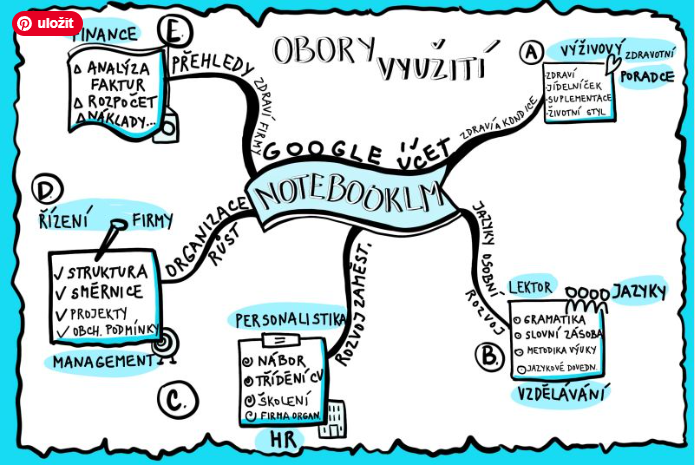 uložit
OBORY VYUŽITÍ
GOOGLE ÚČET
NOTEBOOKLM
A
ZDRAVÍ A KONDICE
VÝŽIVOVÝ
ZDRAVOTNÍ
PORADCE
-ZDRAVÍ
-JÍDELNÍČEK
-SUPLEMENTACE
-ŽIVOTNÍ STYL
B.
JAZYKY OSOBNÍ
ROZVOJ
LEKTOR
JAZYKY
GRAMATIKA
SLOVNÍ ZÁSOBA
METODIKA VÝUKY
JAZYKOVÉ DOVEDN.
VZDĚLÁVÁNÍ
C.
ROZVOJ ZAMĚST.
PERSONALISTIKA
NÁBOR
TŘÍDĚNÍ CV
ŠKOLENÍ
FIRMA ORGAN.
HR
D
ORGANIZACE
RŮST
ŘÍZENÍ FIRMY
✓ STRUKTURA
✓ SMĚRNICE
✓ PROJEKTY
✓ OBCH. PODMÍNKY
MANAGEMENT
E.
PŘEHLEDY
ZDRAVÍ FIRMY
FINANCE
Δ ANALÝZA
FAKTUR
Δ ROZPOČET
Δ NÁKLADY...